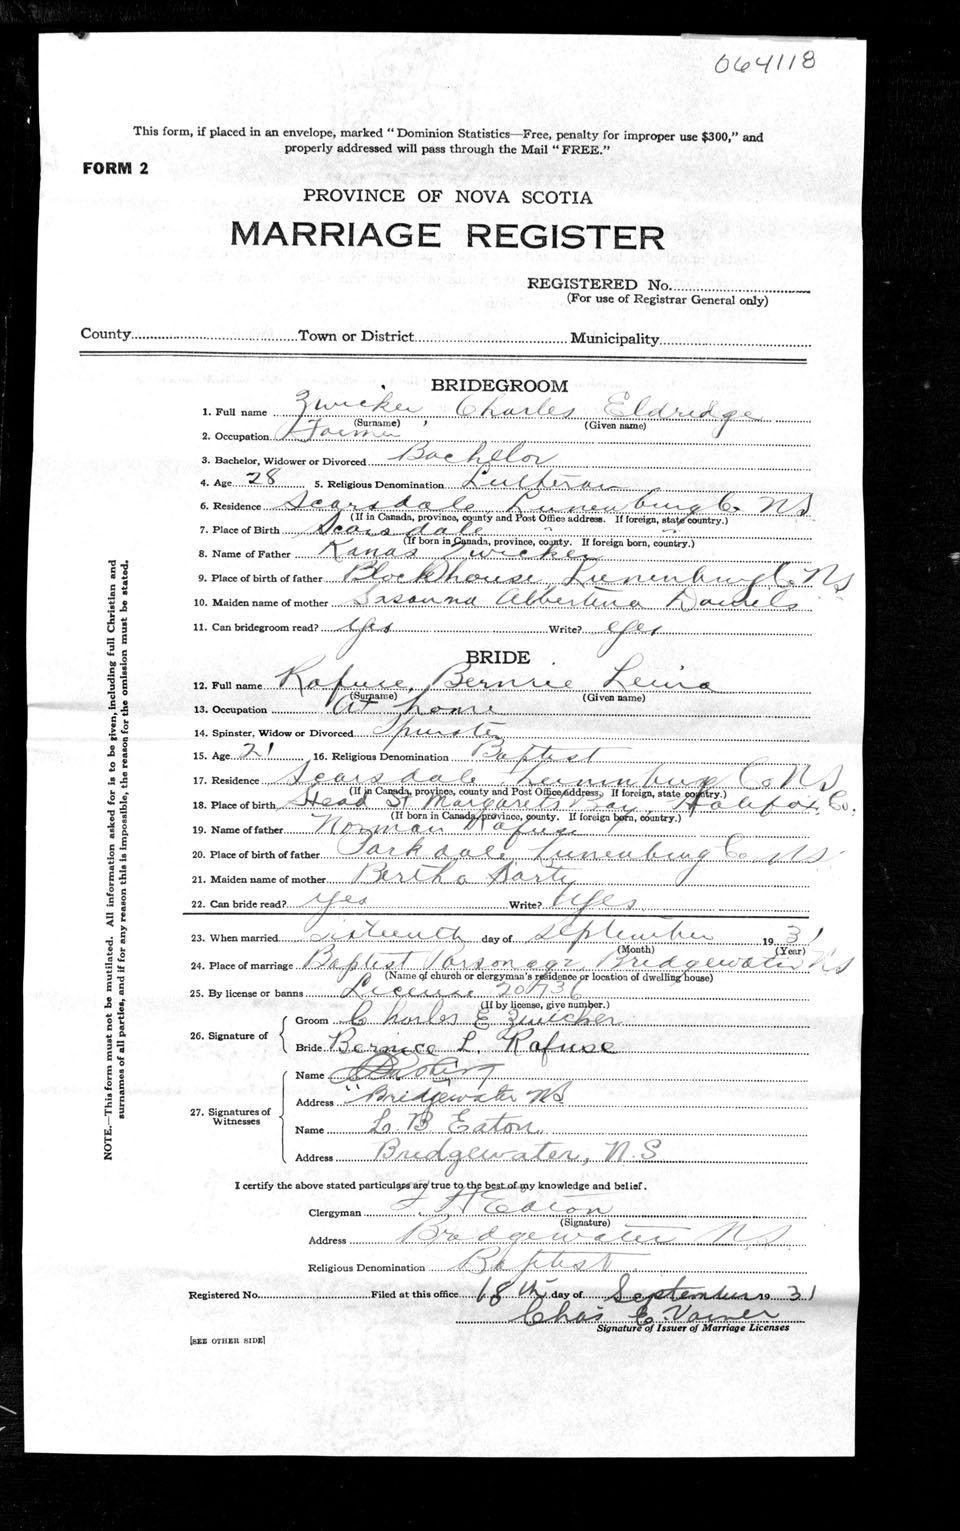 064118
This form, if placed in an envelope, marked "Dominion Statistics—Free, penalty for improper use $300," and
properly addressed will pass through the Mail "FREE."
FORM 2
PROVINCE OF NOVA SCOTIA
MARRIAGE REGISTER
REGISTERED No.
(For use of Registrar General only)
County Town or District Municipality
BRIDEGROOM
1. Full name Zwicker, Charles Eldridge
(Surname) (Given name)
2. Occupation Farmer
3. Bachelor, Widower or Divorced Bachelor
4. Age 28 5. Religious Denomination Lutheran
6. Residence Scarsdale Lunenburg Co NS
(If in Canada, province, county and Post Office address. If foreign, state country.)
7. Place of Birth Scarsdale
(If born in Canada, province, county. If foreign born, country.)
8. Name of Father Kanas Zwicker
9. Place of birth of father Blockhouse, Lunenburg Co NS
10. Maiden name of mother Albertina Daniels
11. Can bridegroom read? yes Write? yes
BRIDE
12. Full name Rafuse, Bernice
(Surname) (Given name)
13. Occupation At home
14. Spinster, Widow or Divorced Spinster
15. Age 21 16. Religious Denomination Baptist
17. Residence Scarsdale Lunenburg Co NS
(If in Canada, province, county and Post Office address, If foreign, state country.)
18. Place of birth, Head St Margarets Bay, Halifax Co.
(If born in Canada, province, county. If foreign born, country.)
19. Name of father Norman Rafuse
20. Place of birth of father Parkdale Lunenburg Co NS
21. Maiden name of mother Bertha
22. Can bride read? yes Write? yes
23. When married sixteenth day of september 1931
(Month) (Year)
24. Place of marriage Baptist Parsonage, Bridgewater NS
(Name of church or clergyman's residence or location of dwelling house)
25. By license or banns License 20736
(If by license, give number.)
26. Signature of
Groom Charles E Zwicker
Bride Bernice L. Rafuse
27. Signatures of Witnesses
Name
Address Bridgewater NS
Name L. B Eaton
Address Bridgewater, N.S
I certify the above stated particulars are true to the best of my knowledge and belief.
Clergyman Eaton
(Signature)
Address Bridgewater N.S.
Religious Denomination Baptist
Registered No. Filed at this office 18th day of September 1931
Chas E
Signature of Issuer of Marriage Licenses
[SEE OTHER SIDE]
NOTE.—This form must not be mutilated. All information asked for is to be given, including full Christian and
surnames of all parties, and if for any reason this is impossible, the reason for the omission must be stated.